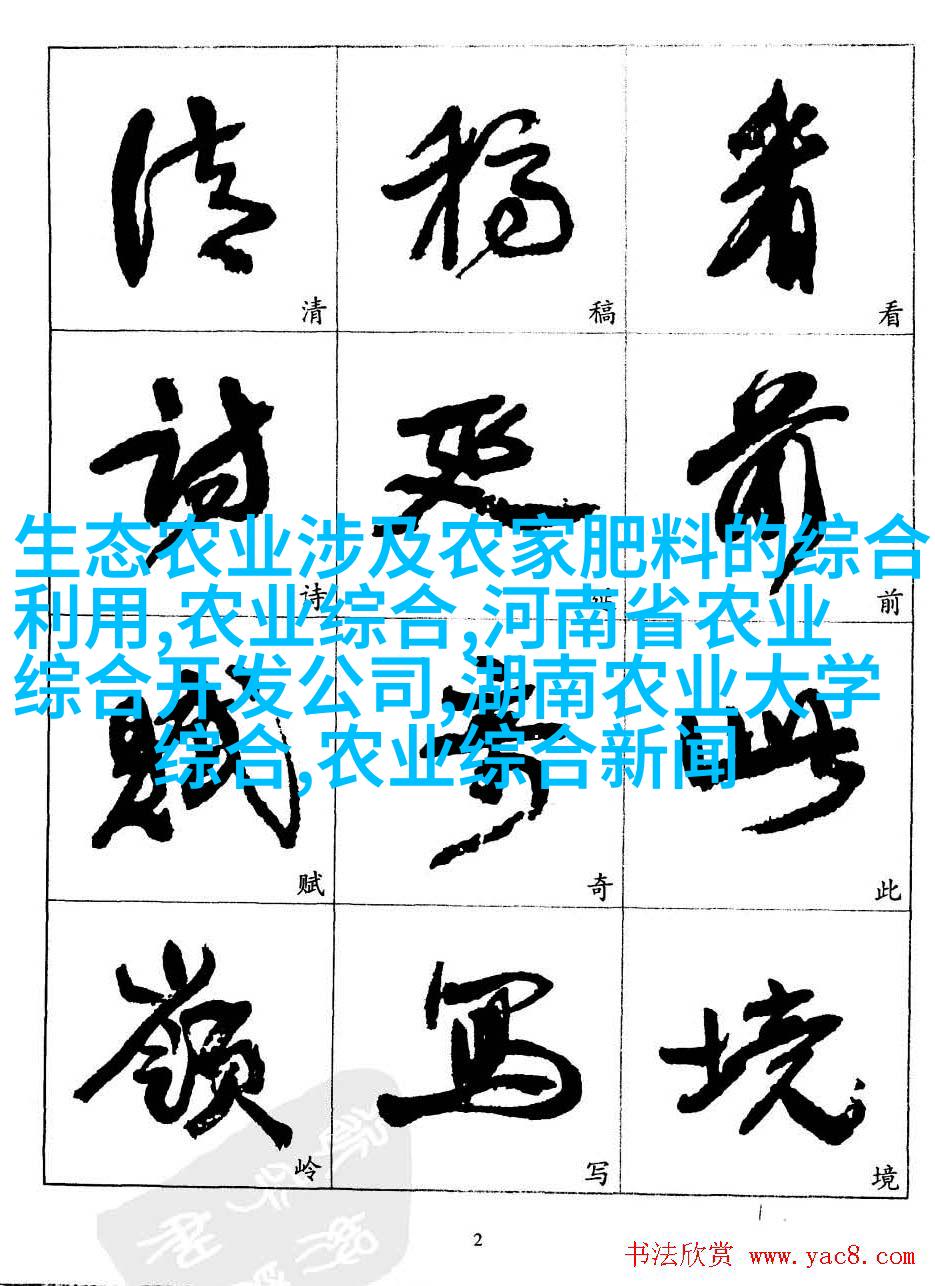 清 稿 看
清 稿 看
詩 延 前
生态农业涉及农家肥料的综合
利用,农业综合,河南省农业
综合开发公司,湖南农业大学
综合,农业综合新闻
诗 前
賦 奇 此
赋 奇 此
嶺 寫 境
岭 写 境
2
书法欣赏 www.yac8.com